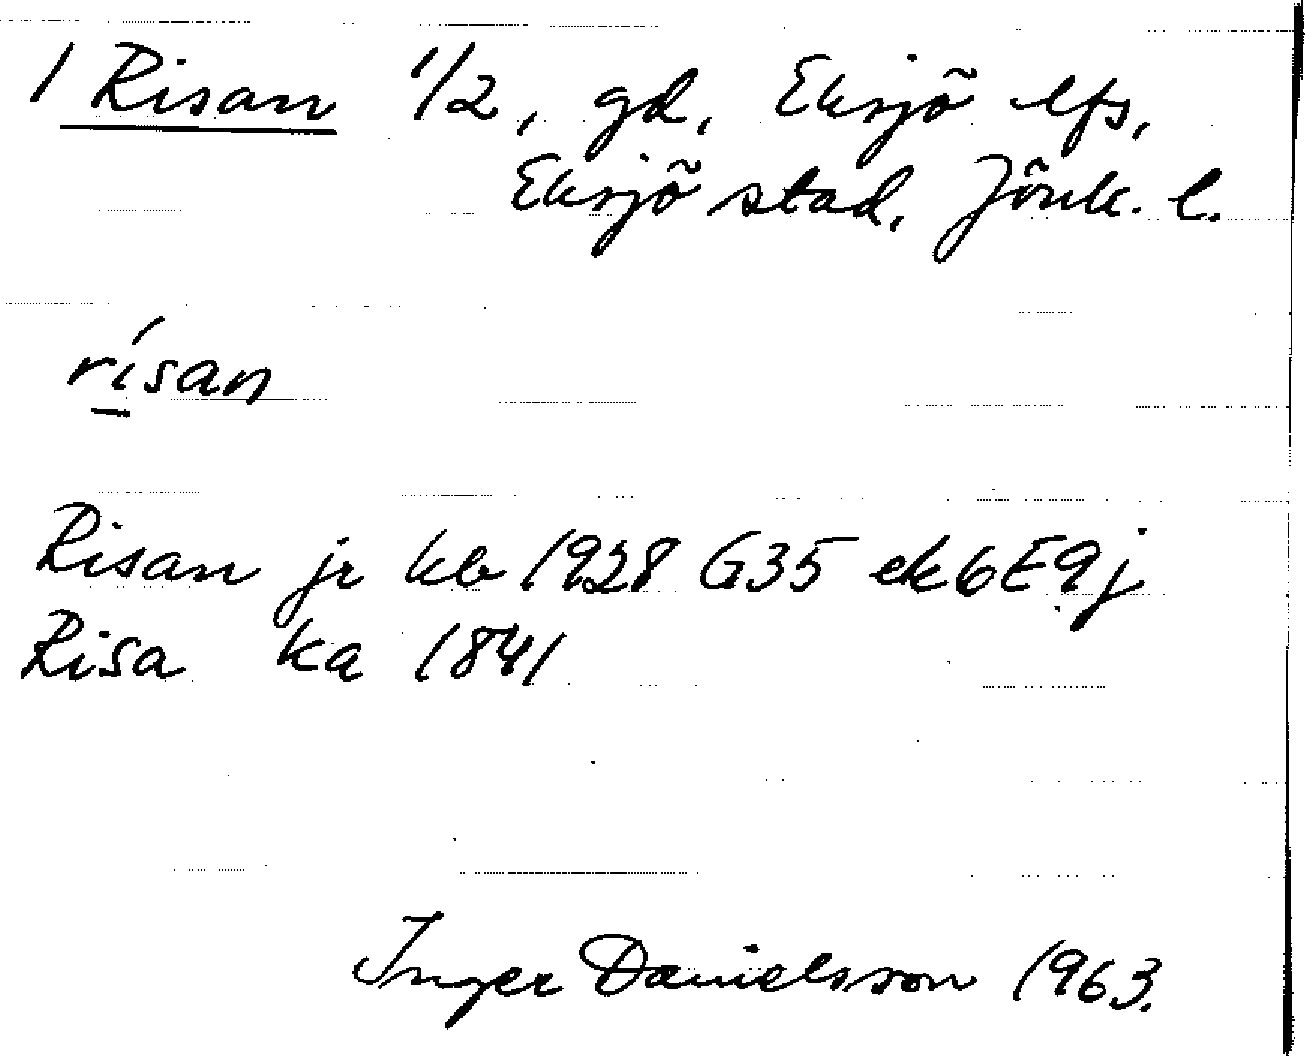 1 Risan 1/2, gd, Eksjö lfs,
Eksjö stad, Jönk. l.
rísan
Risan jr kb 1928 G35 ek6E9j
Risa ka 1841
Inger Danielsson 1963.